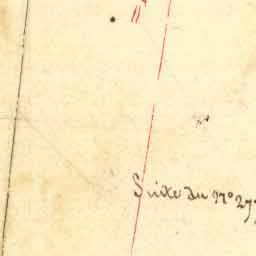 Suite du N° 277